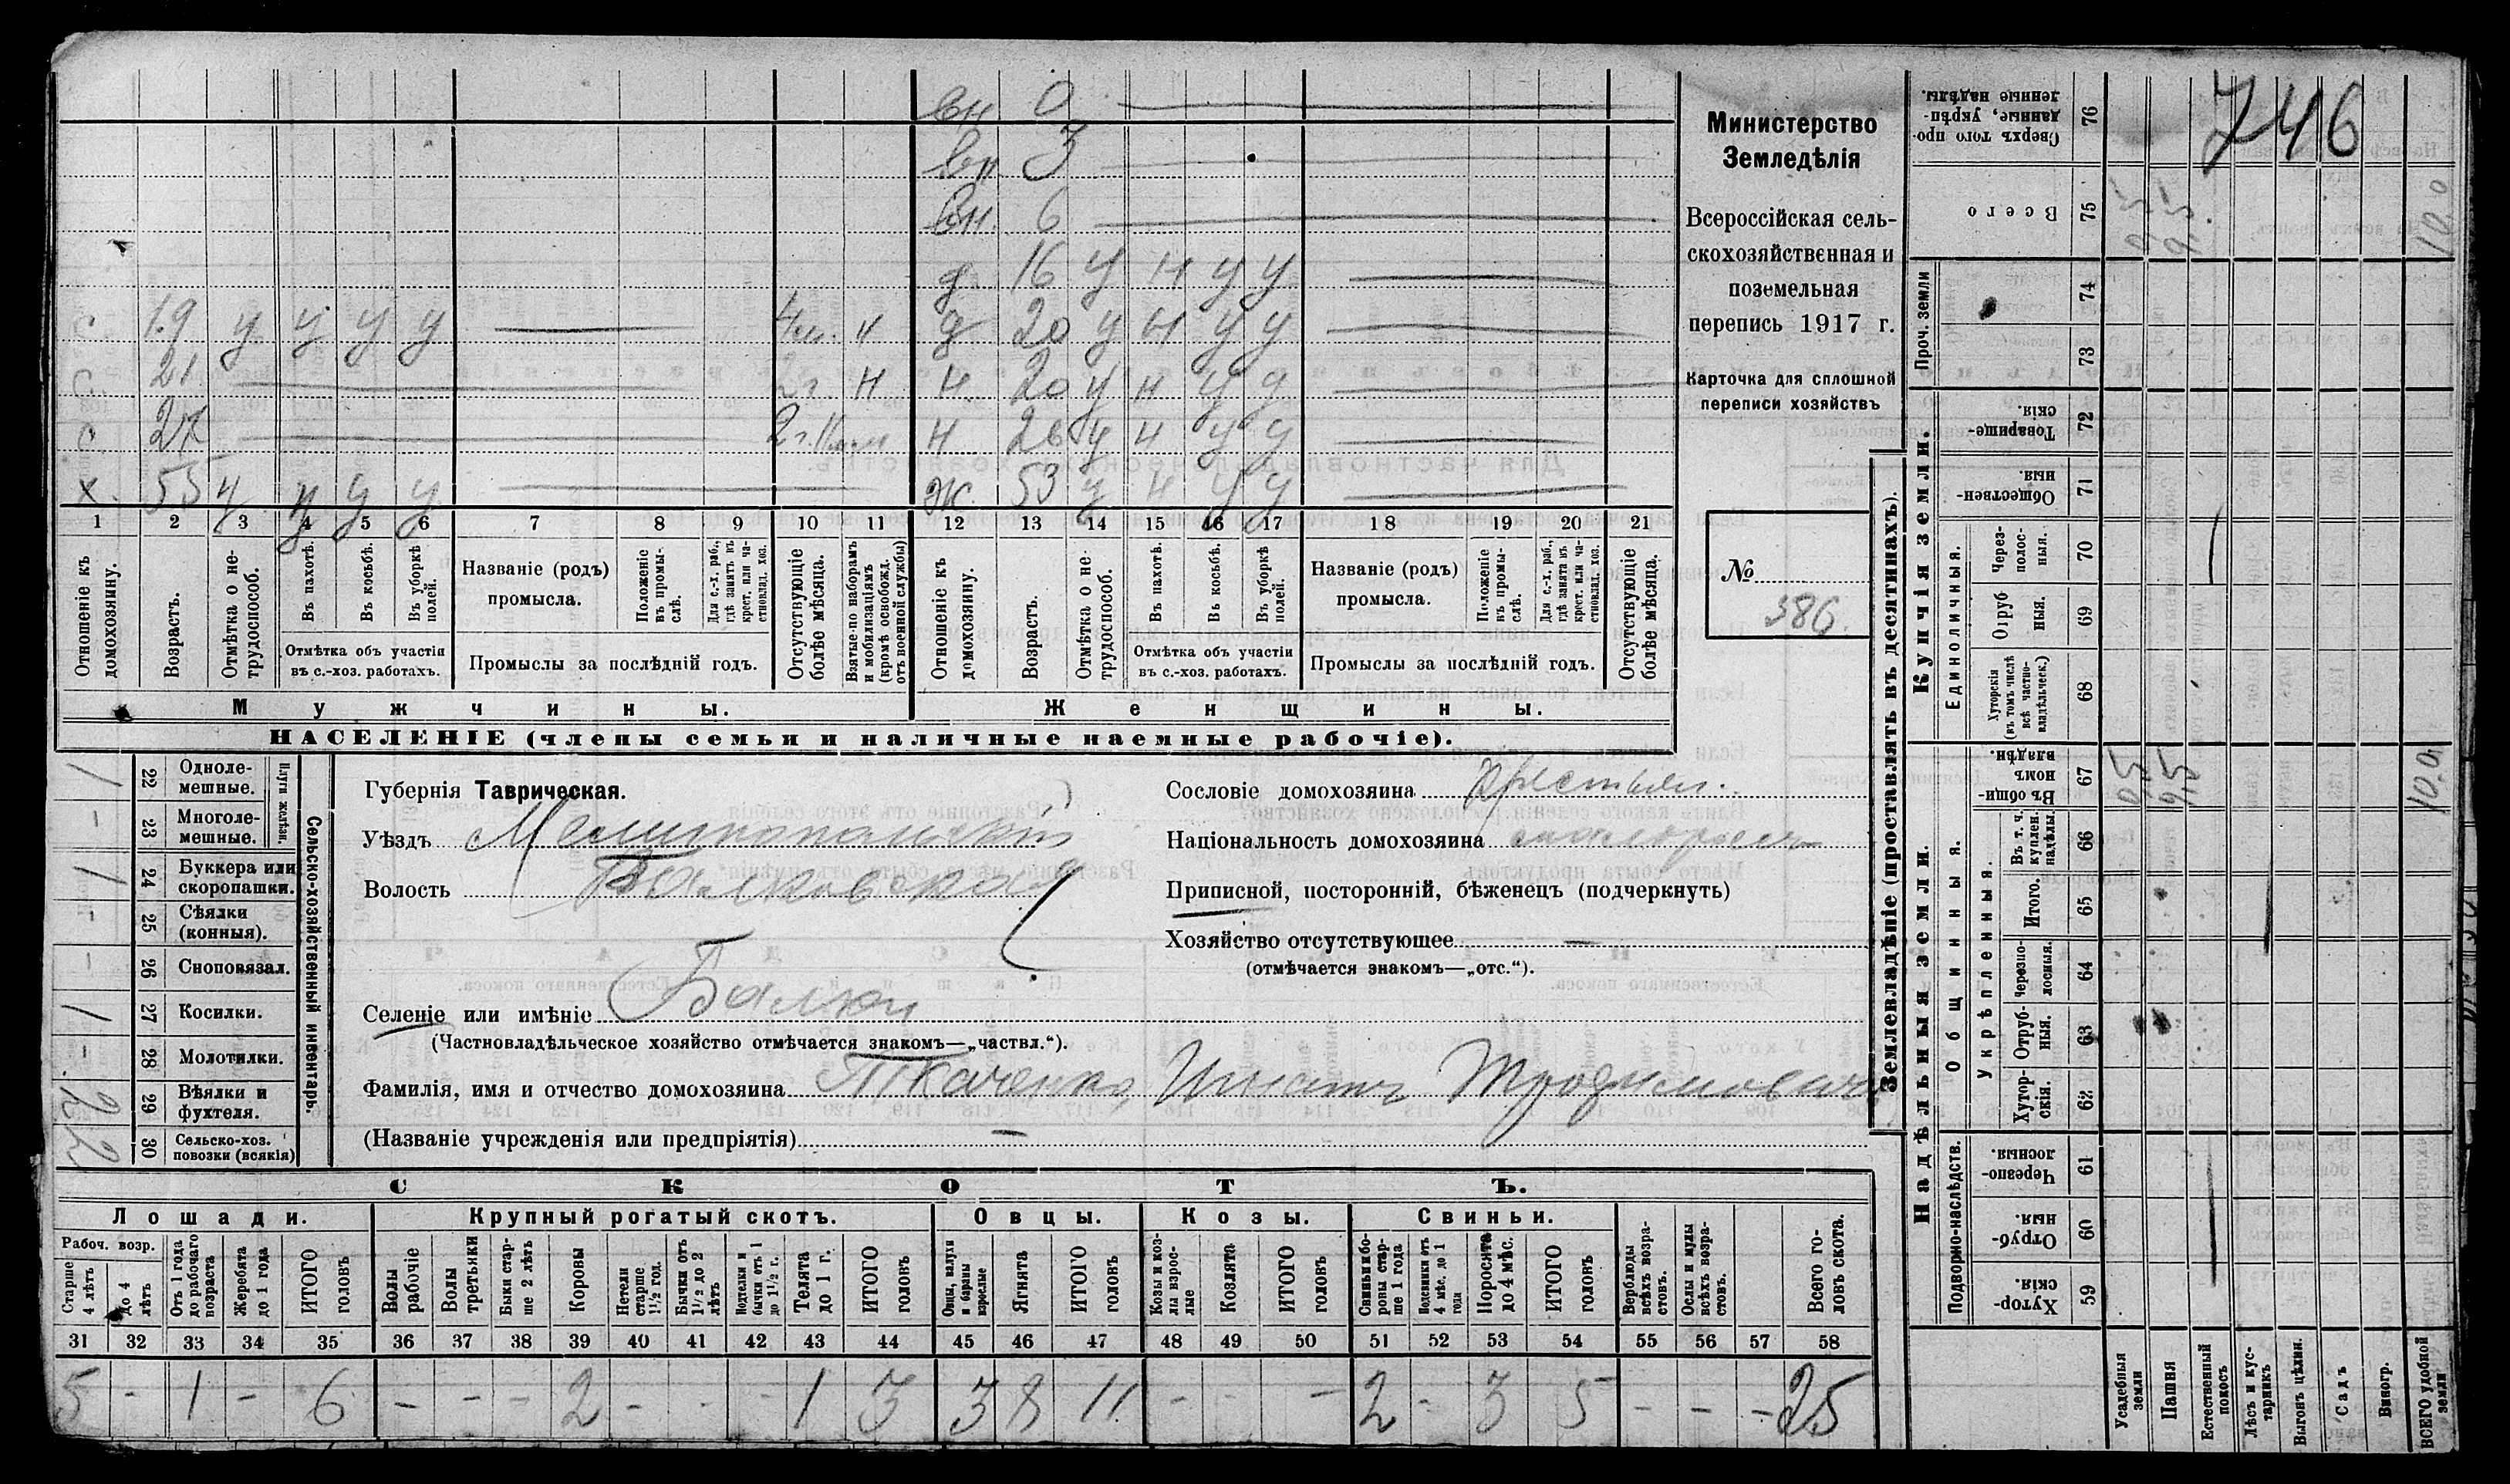 746
вн 0
вн 3
вн. 6
д 16 у н у у
с 19 у у у у 4 м. н д 20 у н у у
с. 21 2 г. н н 20 у н у у
с 27 2 г. н 26 у н у у
х. 55 у у у у ж. 53 у н у у
1 2 3 4 5 6 7 8 9 10 11 12 13 14 15 16 17 18 19 20 21
Отношеніе къ домохозяину.
Возрастъ.
Отмѣтка о нетрудоспособ.
Въ пахотѣ.
Въ косьбѣ.
Въ уборкѣ полей.
Отмѣтка объ участіи въ с.-хоз. работахъ.
Названіе (родъ) промысла.
Положеніе въ промыслѣ.
Для с.-х. раб., гдѣ занятъ въ крест. или частновлад. хоз.
Промыслы за послѣдній годъ.
Отсутствующіе болѣе мѣсяца.
Взятые по наборамъ и мобилизаціямъ (кромѣ освобожд. отъ военной службы)
Отношеніе къ домохозяину.
Возрастъ.
Отмѣтка о нетрудоспособ.
Въ пахотѣ.
Въ косьбѣ.
Въ уборкѣ полей.
Отмѣтка объ участіи въ с.-хоз. работахъ.
Названіе (родъ) промысла.
Положеніе въ промыслѣ.
Для с.-х. раб., гдѣ занята въ крест. или частновлад. хоз.
Промыслы за послѣдній годъ.
Отсутствующіе болѣе мѣсяца.
Мужчины. Женщины.
НАСЕЛЕНІЕ (члены семьи и наличные наемные рабочіе).
Министерство
Земледѣлія
Всероссійская сель-
скохозяйственная и
поземельная
перепись 1917 г.
Карточка для сплошной
переписи хозяйствъ
№
386.
Сельско-хозяйственный инвентарь.
Плуги желѣзн.
22 Одноле-мешные. 1
23 Многоле-мешные. -
24 Буккера или скоропашки. 1
25 Сѣялки (конныя). -
26 Сноповязал. -
27 Косилки. 1
28 Молотилки. -
29 Вѣялки и фухтеля. 2
30 Сельско-хоз. повозки (всякія) 2
Губернія Таврическая.
Уѣздъ Мелитопольскій
Волость Балковская
Селеніе или имѣніе Балки
(Частновладѣльческое хозяйство отмѣчается знакомъ—„частвл.“).
Фамилія, имя и отчество домохозяина Ткаченко Игнатъ Трофимовичъ
(Названіе учрежденія или предпріятія) —
Сословіе домохозяина Крестьян.
Національность домохозяина малоросъ
Приписной, посторонній, бѣженецъ (подчеркнуть)
Хозяйство отсутствующее —
(отмѣчается знакомъ—„отс.“).
СКОТЪ.
Лошади. Крупный рогатый скотъ. Овцы. Козы. Свиньи.
Рабоч. возр.
Старше 4 лѣтъ
до 4 лѣтъ
Отъ 1 года до рабочаго возраста
Жеребята до 1 года
ИТОГО головъ
Волы рабочіе
Волы третьяки
Быки старше 2 лѣтъ
Коровы
Нетели старше 1½ год.
Бычки отъ 1½ до 2 лѣтъ
Подтелки и бычки отъ 1 до 1½ г.
Телята до 1 г.
ИТОГО головъ
Овцы, валухи и бараны взрослые
Ягнята
ИТОГО головъ
Козы и козлы взрослые
Козлята
ИТОГО головъ
Свиньи и боровы старше 1 года
Подсвинки отъ 4 мѣс. до 1 года
Поросята до 4 мѣс.
ИТОГО головъ
Верблюды всѣхъ возрастовъ.
Ослы и мулы всѣхъ возрастовъ.
Всего головъ скота.
31 32 33 34 35 36 37 38 39 40 41 42 43 44 45 46 47 48 49 50 51 52 53 54 55 56 57 58
5 - 1 - 6 - - - 2 - - - 1 3 3 8 11 - - - 2 - 3 5 - - - 25
Землевладѣніе (проставлять въ десятинахъ).
Надѣльныя земли. Купчія земли. Проч. земли
Подворно-наслѣдств.
Общинныя.
Укрѣпленныя.
Единоличныя.
Сверхъ того проданные, укрѣпленные надѣлы. 76
Всего 75 0,5 9,5 10,0
74
73
Товарищескія. 72
Общественныя. 71
Черезполосныя. 70
Отрубныя. 69
Хуторскія (въ томъ числѣ всѣ частновладѣльческ.) 68
Въ общинномъ владѣн. 67 0,5 9,5 10,0
Въ т. ч. куплен. надѣлы. 66
Итого. 65
Черезполосныя. 64
Отрубныя. 63
Хуторскія. 62
Черезполосныя. 61
Отрубныя. 60
Хуторскія. 59
Усадебныя земли
Пашня
Естественный покосъ
Лѣсъ и кустарникъ
Выгонъ цѣлин.
Садъ
Виногр.
ВСЕГО удобной земли